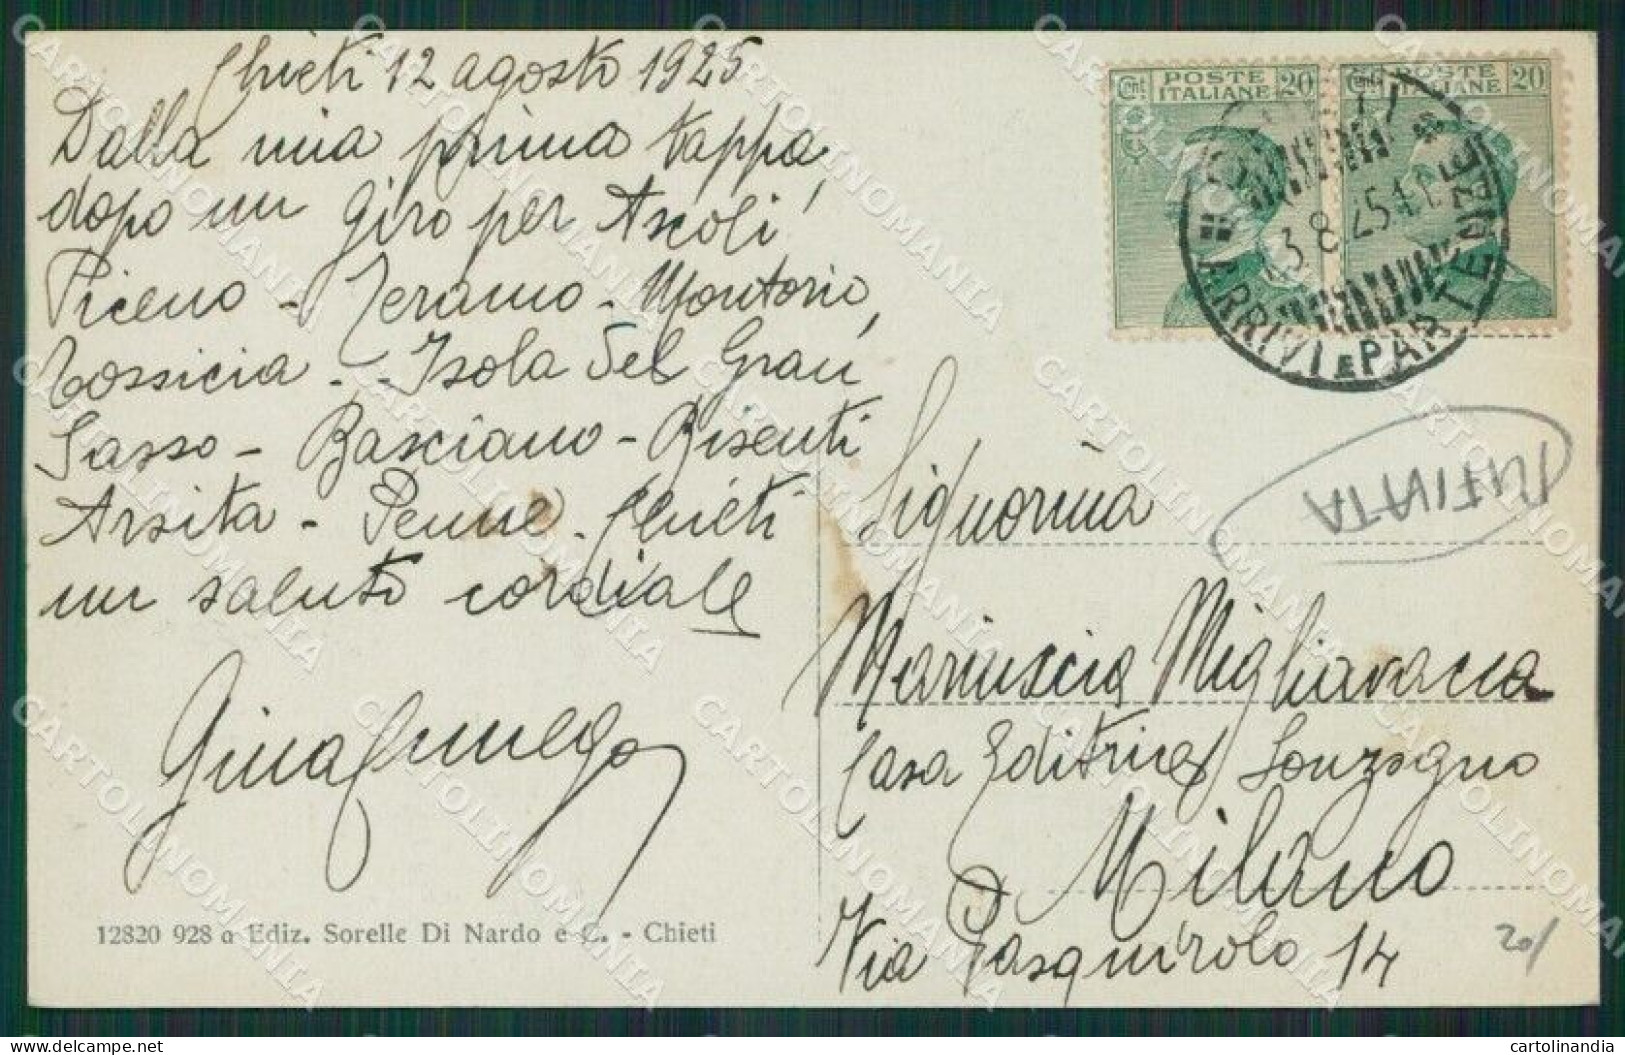 Chieti 12 agosto 1925
Dalla mia prima tappa,
dopo un giro per Ascoli
Piceno - Teramo - Montorio,
Tossicia - Isola del Gran
Sasso - Basciano - Bisenti
Arsita - Penne - Chieti
un saluto cordiale
Gina
12820 928 a Ediz. Sorelle Di Nardo e C. - Chieti
Cent. POSTE ITALIANE 20
Cent. POSTE ITALIANE 20
3 8 25
ARRIVI E PARTENZE
Signorina
Mariuccia Migliavacca
Casa Editrice Sonzogno
Milano
Via Pasquirolo 14
20/
CARTOLINOMANIA
delcampe.net
cartolinandia